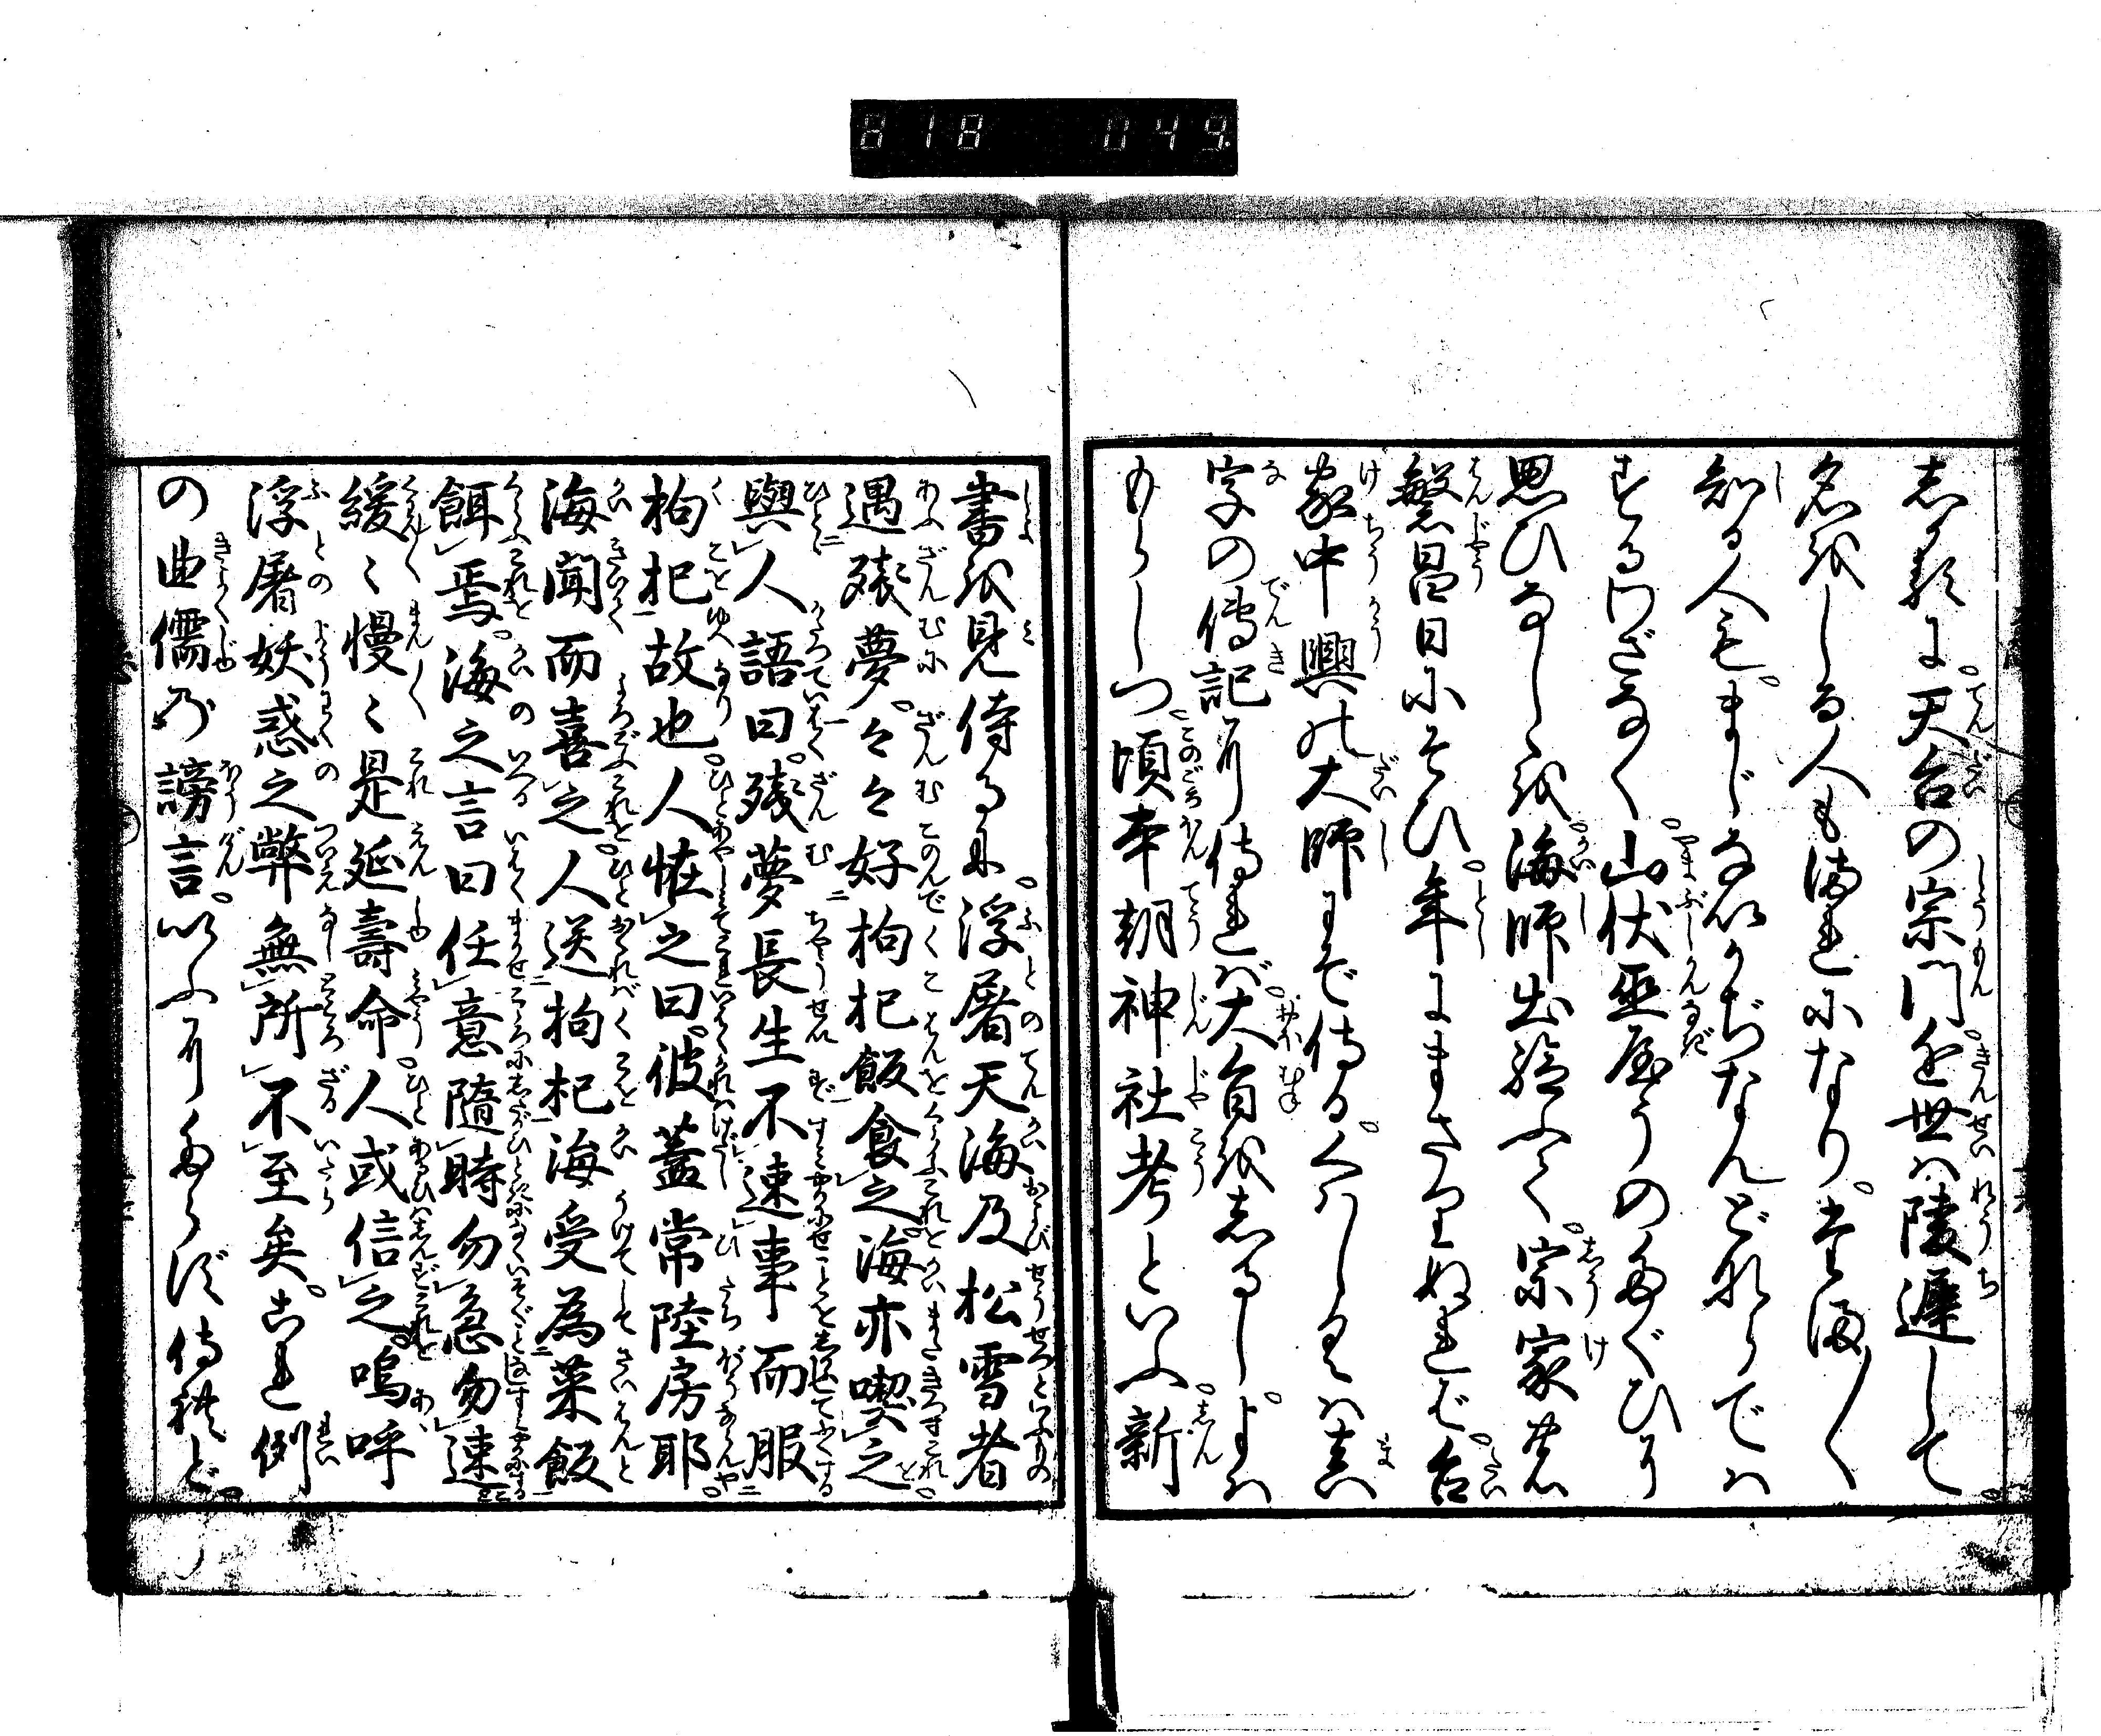 818 049
志かるに。天台の宗門近世ハ陵遅して。
名をしる人も満れになり。たま〳〵
知る人も。まじなひかぢなんどならでハ
せるわざなく。山伏巫屋うのたぐひに
思ひなしゝを。海師出給ふて。宗家の
繁昌日にそひ。年にまさりぬれば。台
家中興の大師にて侍る。くハしくハ真
字の傳記に侍れバ。大旨を志るし。よハ
もらしつ。頃本朝神社考といふ。新
書を見侍るに。浮屠天海及松雪者
遇殘夢。々々好枸杞飯食之。海亦喫之。
與人語曰。殘夢長生不速事而服
枸杞故也。人恠之曰。彼蓋常陸房耶。
海聞而喜之。人送枸杞海受為菜飯
餌焉。海之言曰任意隨時勿急勿速
緩〻慢〻是延壽命。人或信之。嗚呼
浮屠妖惑之弊無所不至矣。これ例
の曲儒乃謗言。いふにたらず侍れど。